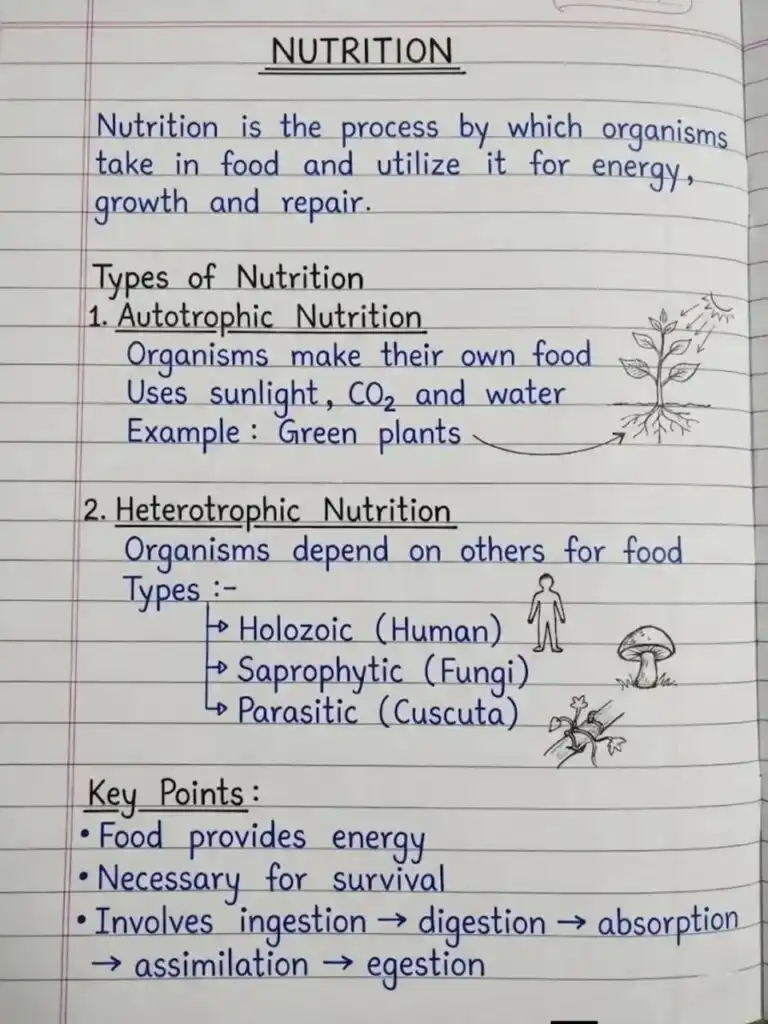 NUTRITION
Nutrition is the process by which organisms
take in food and utilize it for energy,
growth and repair.
Types of Nutrition
1. Autotrophic Nutrition
Organisms make their own food
Uses sunlight, CO₂ and water
Example : Green plants
2. Heterotrophic Nutrition
Organisms depend on others for food
Types :-
Holozoic (Human)
Saprophytic (Fungi)
Parasitic (Cuscuta)
Key Points :
• Food provides energy
• Necessary for survival
• Involves ingestion → digestion → absorption
→ assimilation → egestion